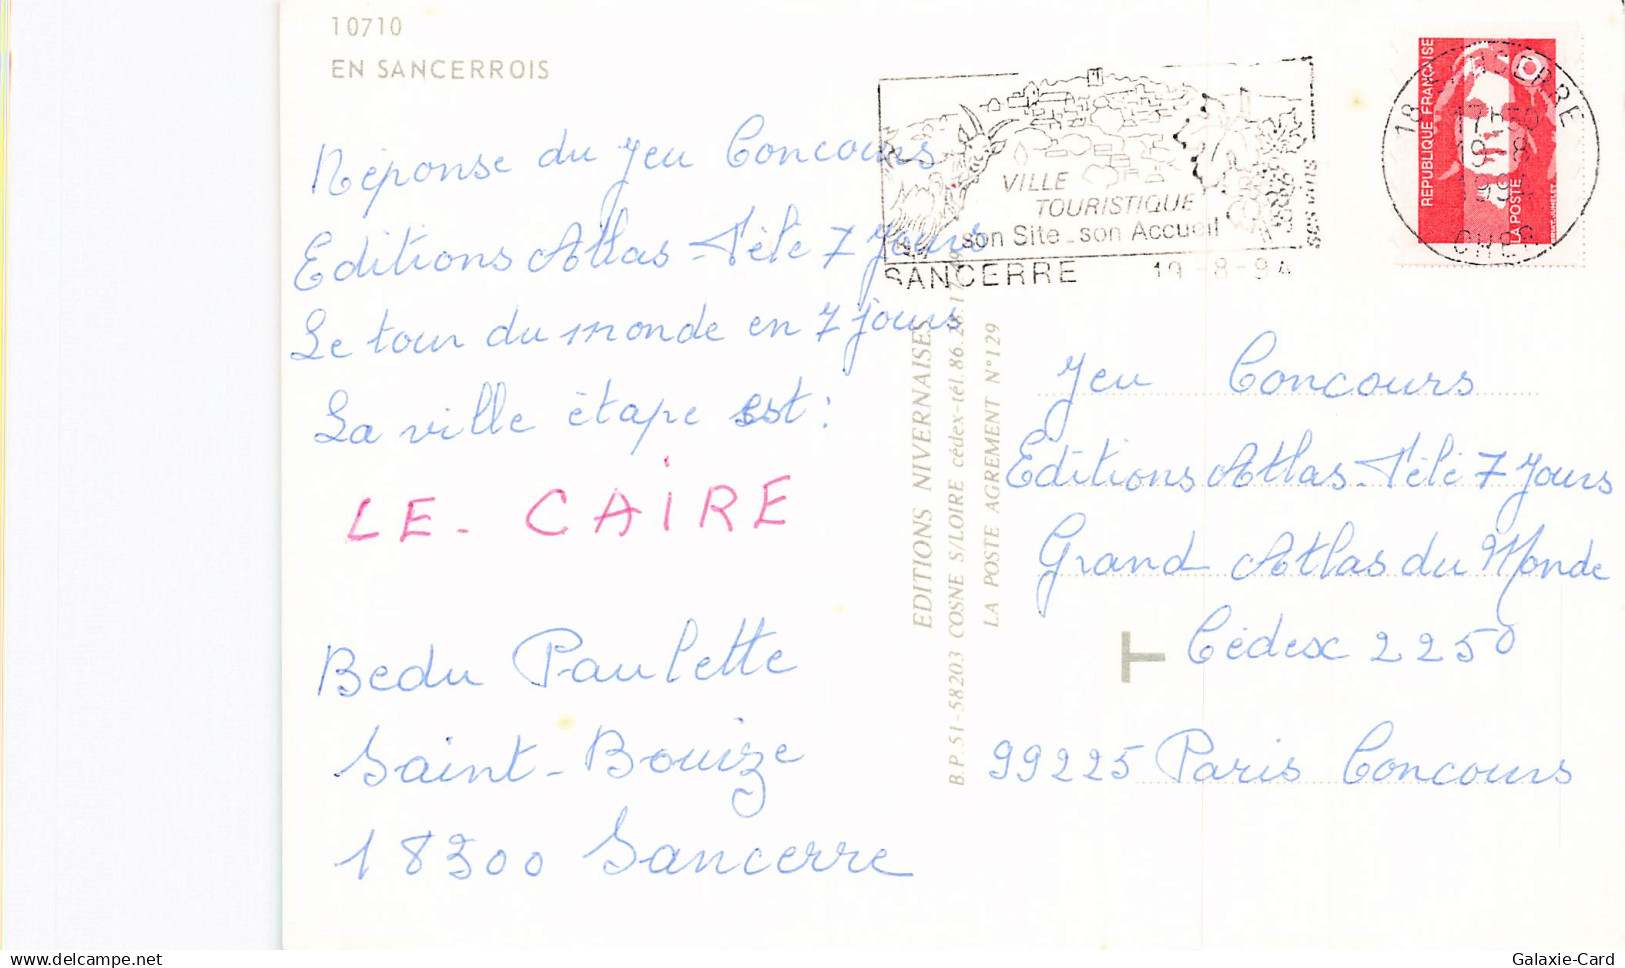 10710
EN SANCERROIS
Réponse du Jeu Concours
Editions Atlas - Télé 7 Jours
Le tour du monde en 7 jours
La ville étape est :
LE - CAIRE
Bedu Paulette
Saint-Bouize
18300 Sancerre
EDITIONS NIVERNAISES
B.P. 51-58203 COSNE S/LOIRE cédex-tél.86.
LA POSTE AGREMENT N°129
VILLE
TOURISTIQUE
son Site - son Accueil
ses vins
SANCERRE 19-8-94
18 SANCERRE
19-8
1994
CHER
REPUBLIQUE FRANÇAISE
LA POSTE
Jeu Concours
Editions Atlas - Télé 7 Jours
Grand Atlas du Monde
Cédex 2250
99225 Paris Concours
T
www.delcampe.net
Galaxie-Card